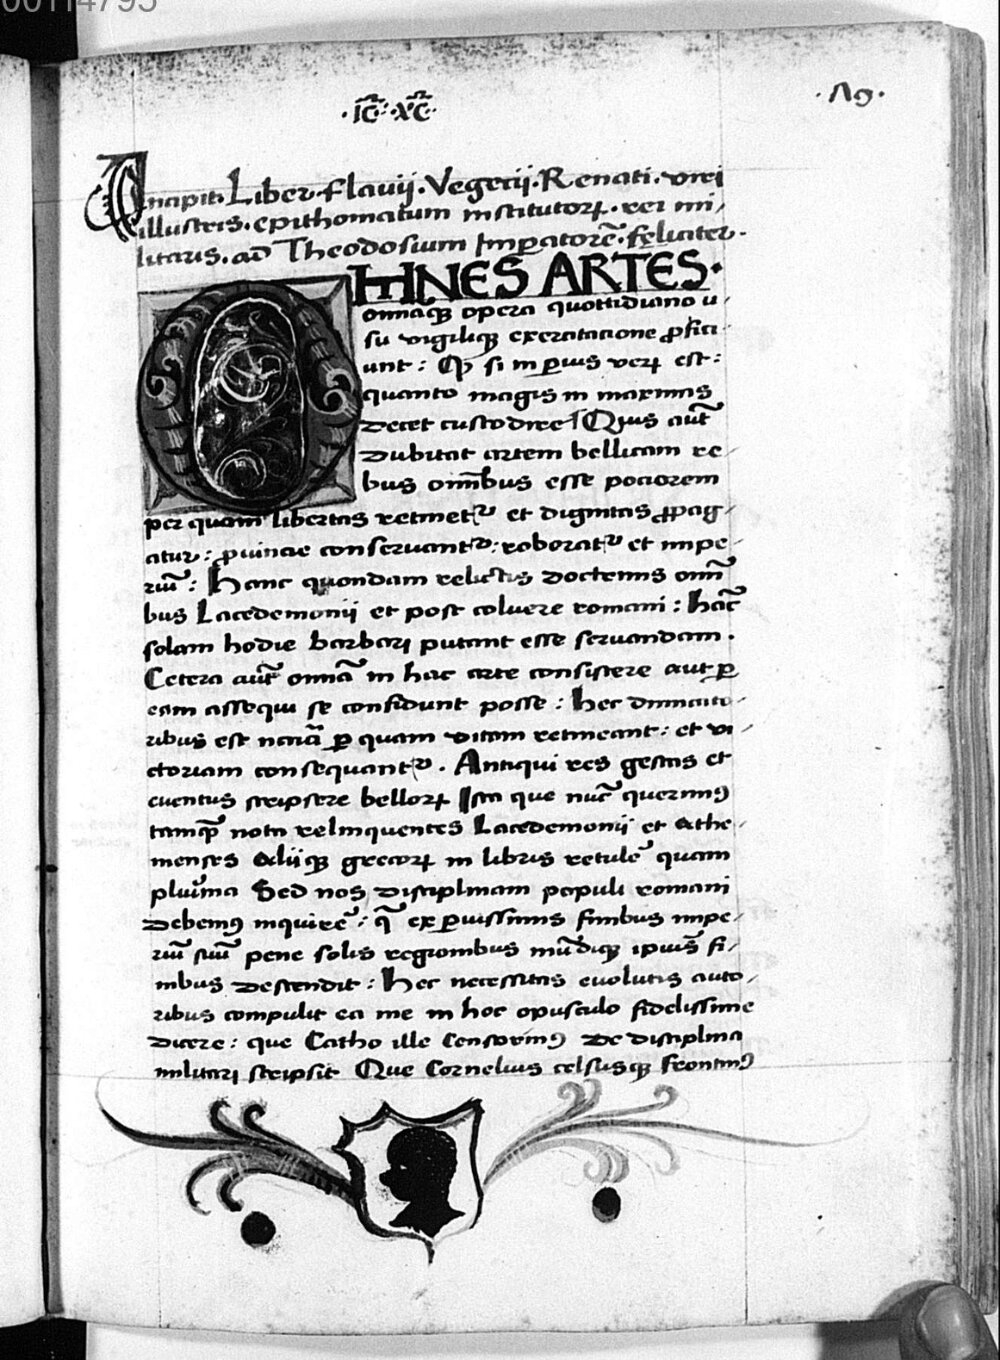 00114795
·IC̅· ·XC̅·
Incipit· Liber· flauij· Vegecij· Renati· viri
illustris· epithomatum institutorꝝ· rei mi/
litaris· ad Theodosium Imꝑatorē· feliciter·
OMNES ARTES·
omniaqꝫ opera quottidiano u/
su vigiliqꝫ exercitacione ꝓfici/
unt: Qd̛ si in ꝑuis verꝝ est:
quanto magis in maximis
decet custodire Quis aut̄
dubitat artem bellicam re/
bus om̄ibus esse pociorem
per quam libertas retinetᷣ et dignitas ꝓpag/
atur: ꝓuincie conseruantᷣ: roboratᷣ et impe/
riū: Hanc quondam relictis doctrinis om̄i
bus Lacedemonij et post coluere romani: hāc
solam hodie barbari putant esse seruandam.
Cetera aut̄ omīa in hac arte consistere aut ꝑ
eam assequi se confidunt posse: hec dimicato/
ribus est nc̄cīa ꝑ quam vitam retineant: et vi/
ctoriam consequantᷣ. Antiqui res gestas et
euentus scripsere bellorꝝ Ista que nūc querimꝰ
tamqꝫ̄ nota relinquentes Lacedemonij et Athe/
nienses Aliiqꝫ grecorꝝ in libris retulēr quam
pluīma Sed nos disciplinam populi romani
debemꝰ inquirē: q̄ ex ꝑuissimis finibus impe/
riū suū pene solis regionibus mūdiqꝫ ipuīs fi/
nibus descendit: Hec necessitas euolutis auto/
ribus compulit ea me in hoc opusculo fidelissime
dicere: que Catho ille Censorinꝰ De disciplina
militari scripsit Que Cornelius celsusqꝫ Frontinꝰ